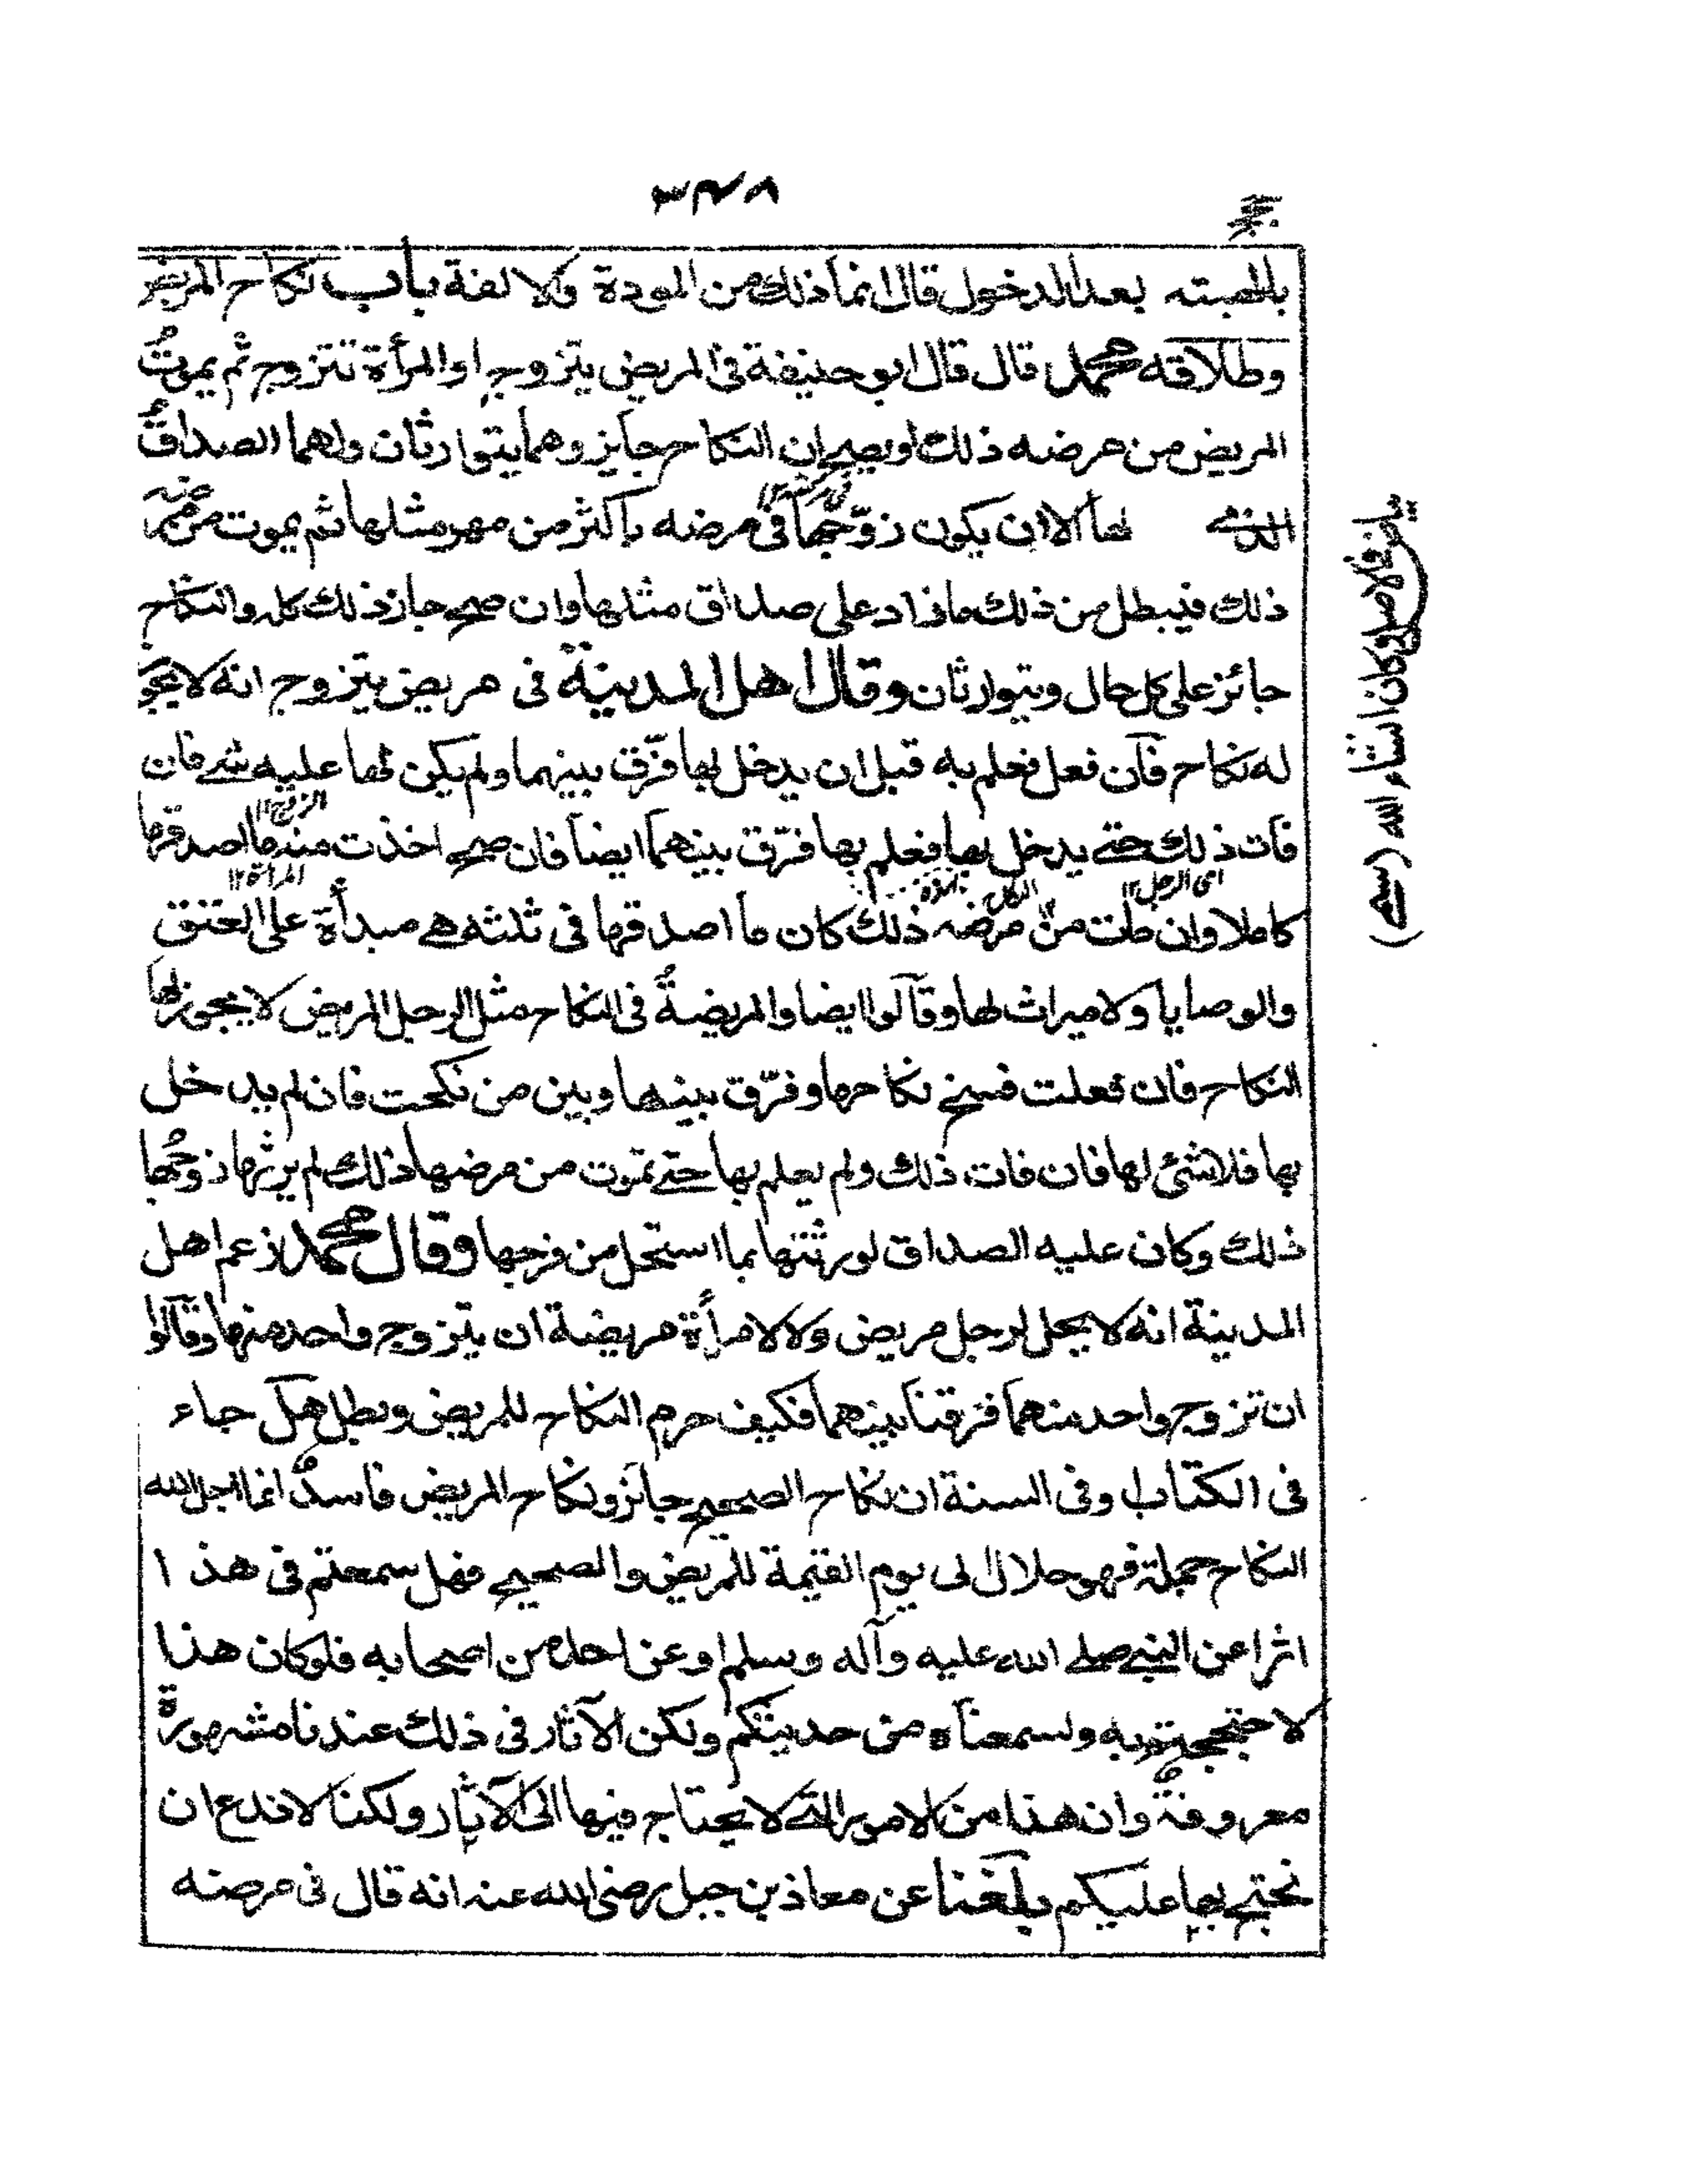 ٣٤٨
بالهبة بعد الدخول قال انما ذلك من المودة والالفة باب نكاح المريض
وطلاقه محمد قال قال ابو حنيفة فى المريض يتزوج او المرأة تتزوج ثم يموت
المريض من مرضه ذلك او يصح ان النكاح جايز وهما يتوارثان ولهما الصداق
الذى لها الا ان يكون زوّجها فى مرضه باكثر من مهر مثلها ثم يموت من مرضه
ذلك فيبطل من ذلك ما زاد على صداق مثلها وان صح جاز ذلك كله والنكاح
جائز على كل حال ويتوارثان وقال اهل المدينة فى مريض يتزوج انه لا يجوز
له نكاح فان فعل فعلم به قبل ان يدخل بها فرّق بينهما ولم يكن لها عليه شئ فان
فات ذلك حتى يدخل بها فعلم بها فرّق بينهما ايضا فان صح اخذت منه ما اصدقها
الزوج ١٢
كاملا وان مات من مرضه ذلك كان ما اصدقها فى ثلثه هى مبدأة على العتق
اى الرجل ١٢
المرأة ١٢
والوصايا ولا ميراث لها وقالوا ايضا والمريضة فى النكاح مثل الرجل المريض لا يجوز لها
النكاح فان فعلت فسخ نكاحها وفرّق بينها وبين من نكحت فان لم يدخل
بها فلا شئ لها فان فات ذلك ولم يعلم بها حتى تموت من مرضها ذلك لم يرثها زوجها
ذلك وكان عليه الصداق لورثتها بما استحل من فرجها وقال محمد زعم اهل
المدينة انه لا يحل لرجل مريض ولا لامرأة مريضة ان يتزوج واحد منهما وقالوا
ان تزوج واحد منهما فرقنا بينهما فكيف حرم النكاح للمريض وبطل هل جاء
فى الكتاب وفى السنة ان نكاح الصحيح جائز ونكاح المريض فاسد انما احل الله
النكاح جملة فهو حلال الى يوم القيمة للمريض والصحيح فهل سمعتم فى هذا
اثرا عن النبى صلى الله عليه وآله وسلم او عن احد من اصحابه فلو كان هذا
لاحتججتم به ولسمعناه من حديثكم ولكن الآثار فى ذلك عندنا مشهورة
معروفة وان هذا من الامور التى لا يحتاج فيها الى الآثار ولكنا لا ندع ان
نحتج بها عليكم بلغنا عن معاذ بن جبل رضى الله عنه انه قال فى مرضه